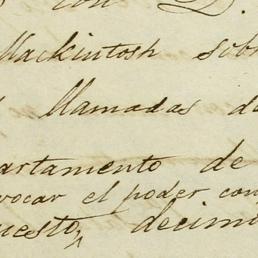 con D.
Mackintosh sob
llamadas d
artamento de
vocar el poder con
uesto, decim